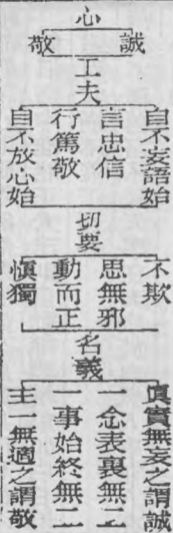 心
誠
敬
工夫
自不妄語始
言忠信
行篤敬
自不放心始
切要
不欺
思無邪
動而正
慎獨
名義
眞實無妄之謂誠
一念表裏無二
一事始終無二
主一無適之謂敬